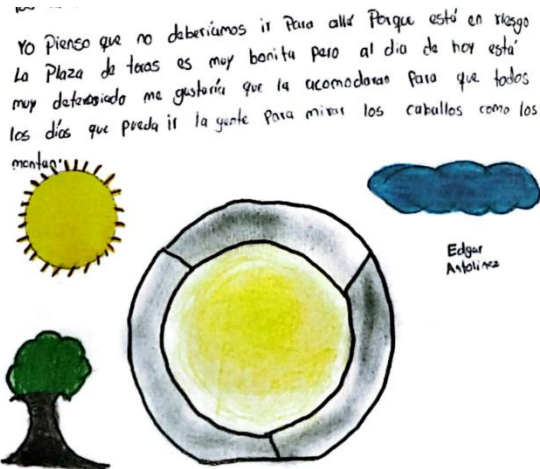 Yo Pienso que no deberíamos ir Para allá Porque está en riesgo
La Plaza de toros es muy bonita pero al dia de hoy está
muy deteriogiado me gustaría que la acomodaran Para que todos
los días que pueda ir la gente Para mirar los caballos como los
montan.
Edgar
Antolinez